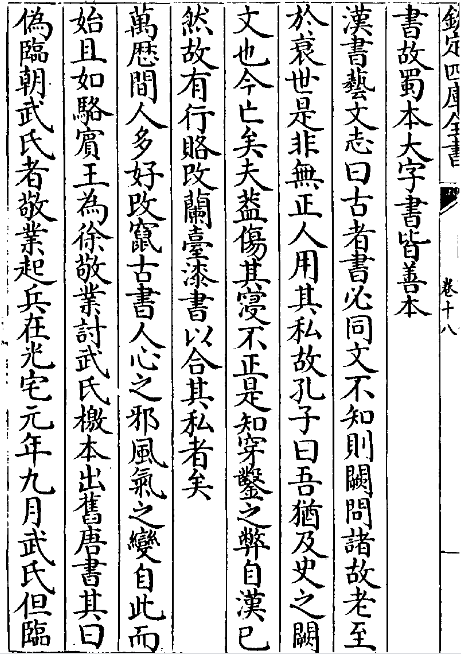 欽定四庫全書
卷十八
書故蜀本大字書皆善本
漢書藝文志曰古者書必同文不知則闕問諸故老至
於衰世是非無正人用其私故孔子曰吾猶及史之闕
文也今亡矣夫葢傷其寖不正是知穿鑿之弊自漢已
然故有行賂改蘭臺漆書以合其私者矣
萬歴間人多好改竄古書人心之邪風氣之變自此而
始且如駱賓王為徐敬業討武氏檄本出舊唐書其曰
偽臨朝武氏者敬業起兵在光宅元年九月武氏但臨